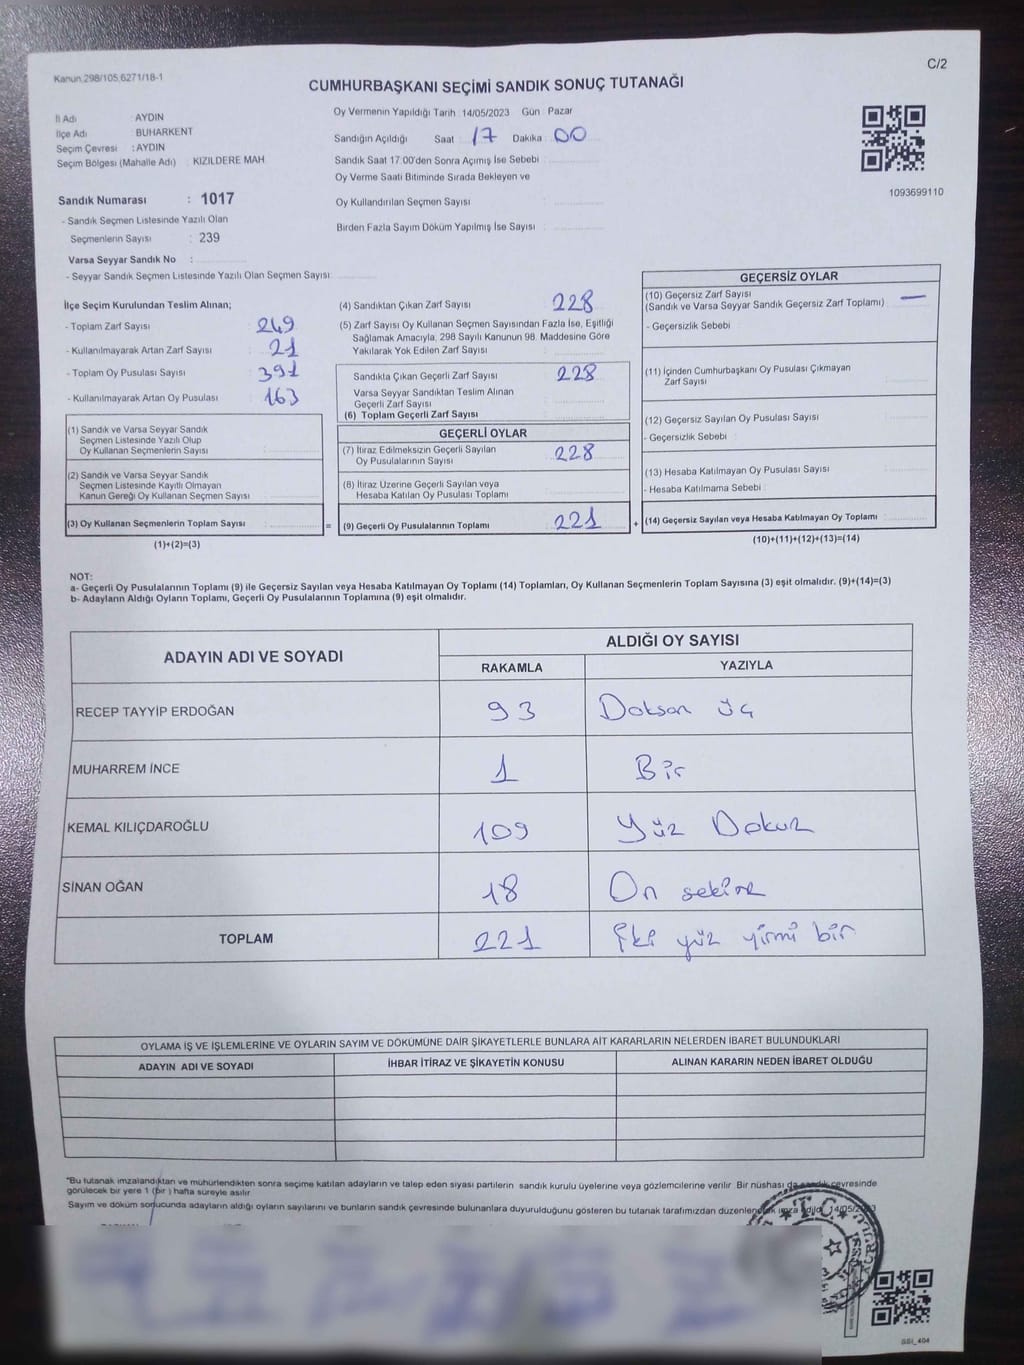 Kanun.298/105,6271/18-1
C/2
CUMHURBAŞKANI SEÇİMİ SANDIK SONUÇ TUTANAĞI
İl Adı : AYDIN
İlçe Adı : BUHARKENT
Seçim Çevresi : AYDIN
Seçim Bölgesi (Mahalle Adı) : KIZILDERE MAH.
Sandık Numarası : 1017
- Sandık Seçmen Listesinde Yazılı Olan
Seçmenlerin Sayısı : 239
Varsa Seyyar Sandık No :
- Seyyar Sandık Seçmen Listesinde Yazılı Olan Seçmen Sayısı:
Oy Vermenin Yapıldığı Tarih : 14/05/2023 Gün : Pazar
Sandığın Açıldığı Saat : 17 Dakika : 00
Sandık Saat 17.00'den Sonra Açımış İse Sebebi :
Oy Verme Saati Bitiminde Sırada Bekleyen ve
Oy Kullandırılan Seçmen Sayısı :
Birden Fazla Sayım Döküm Yapılmış İse Sayısı :
1093699110
İlçe Seçim Kurulundan Teslim Alınan;
- Toplam Zarf Sayısı : 249
- Kullanılmayarak Artan Zarf Sayısı : 21
- Toplam Oy Pusulası Sayısı : 391
- Kullanılmayarak Artan Oy Pusulası : 163
(1) Sandık ve Varsa Seyyar Sandık
Seçmen Listesinde Yazılı Olup
Oy Kullanan Seçmenlerin Sayısı :
(2) Sandık ve Varsa Seyyar Sandık
Seçmen Listesinde Kayıtlı Olmayan
Kanun Gereği Oy Kullanan Seçmen Sayısı :
(3) Oy Kullanan Seçmenlerin Toplam Sayısı :
(1)+(2)=(3)
(4) Sandıktan Çıkan Zarf Sayısı : 228
(5) Zarf Sayısı Oy Kullanan Seçmen Sayısından Fazla İse, Eşitliği
Sağlamak Amacıyla, 298 Sayılı Kanunun 98. Maddesine Göre
Yakılarak Yok Edilen Zarf Sayısı :
Sandıkta Çıkan Geçerli Zarf Sayısı : 228
Varsa Seyyar Sandıktan Teslim Alınan
Geçerli Zarf Sayısı :
(6) Toplam Geçerli Zarf Sayısı :
GEÇERLİ OYLAR
(7) İtiraz Edilmeksizin Geçerli Sayılan
Oy Pusulalarının Sayısı : 228
(8) İtiraz Üzerine Geçerli Sayılan veya
Hesaba Katılan Oy Pusulası Toplamı :
= (9) Geçerli Oy Pusulalarının Toplamı : 221
GEÇERSİZ OYLAR
(10) Geçersiz Zarf Sayısı
(Sandık ve Varsa Seyyar Sandık Geçersiz Zarf Toplamı) : —
- Geçersizlik Sebebi :
(11) İçinden Cumhurbaşkanı Oy Pusulası Çıkmayan
Zarf Sayısı :
(12) Geçersiz Sayılan Oy Pusulası Sayısı :
- Geçersizlik Sebebi :
(13) Hesaba Katılmayan Oy Pusulası Sayısı :
- Hesaba Katılmama Sebebi :
+ (14) Geçersiz Sayılan veya Hesaba Katılmayan Oy Toplamı :
(10)+(11)+(12)+(13)=(14)
NOT:
a- Geçerli Oy Pusulalarının Toplamı (9) ile Geçersiz Sayılan veya Hesaba Katılmayan Oy Toplamı (14) Toplamları, Oy Kullanan Seçmenlerin Toplam Sayısına (3) eşit olmalıdır. (9)+(14)=(3)
b- Adayların Aldığı Oyların Toplamı, Geçerli Oy Pusulalarının Toplamına (9) eşit olmalıdır.
ADAYIN ADI VE SOYADI ALDIĞI OY SAYISI
RAKAMLA YAZIYLA
RECEP TAYYİP ERDOĞAN 93 Doksan üç
MUHARREM İNCE 1 Bir
KEMAL KILIÇDAROĞLU 109 Yüz Dokuz
SİNAN OĞAN 18 On sekiz
TOPLAM 221 İki yüz yirmi bir
OYLAMA İŞ VE İŞLEMLERİNE VE OYLARIN SAYIM VE DÖKÜMÜNE DAİR ŞİKAYETLERLE BUNLARA AİT KARARLARIN NELERDEN İBARET BULUNDUKLARI
ADAYIN ADI VE SOYADI İHBAR İTİRAZ VE ŞİKAYETİN KONUSU ALINAN KARARIN NEDEN İBARET OLDUĞU
"Bu tutanak imzalandıktan ve mühürlendikten sonra seçime katılan adayların ve talep eden siyasi partilerin sandık kurulu üyelerine veya gözlemcilerine verilir. Bir nüshası da sandık çevresinde
görülecek bir yere 1 (bir ) hafta süreyle asılır.
Sayım ve döküm sonucunda adayların aldığı oyların sayılarını ve bunların sandık çevresinde bulunanlara duyurulduğunu gösteren bu tutanak tarafımızdan düzenlenerek imza edildi. 14/05/2023
GSI_404